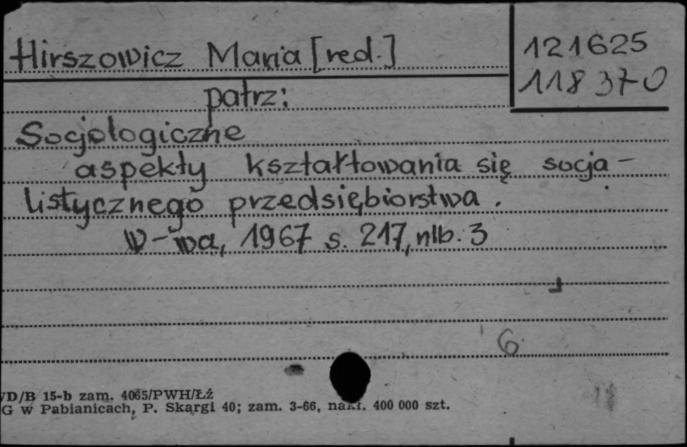 Hirszowicz Maria [red.]
121625
118370
patrz:
Socjologiczne
aspekty kształtowania się socja-
listycznego przedsiębiorstwa.
W-wa, 1967 s. 217, nlb. 3
6
VD/B 15-b zam. 4065/PWH/Łź
G w Pabianicach, P. Skargi 40; zam. 3-66, nakł. 400 000 szt.